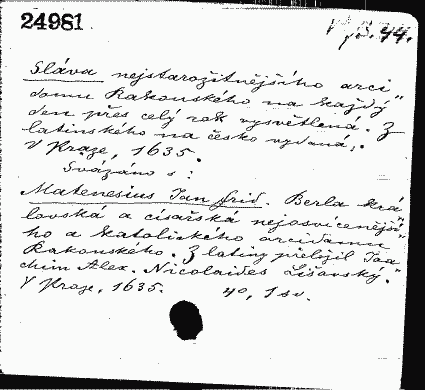 24981
V β. 44.
Sláva nejstarožitnějšího arci"
domu Rakouského na každý
den přes celý rok vysvětlená. Z
latinského na česko vydaná.
V Praze, 1635.
Svázáno s:
Matenesius Jan Frid. Berla krá"
lovská a císařská nejosvícenější"
ho a katolického arcidomu
Rakouského. Z latiny přeložil Joa"
chim Alex. Nicolaides Lišovský.
V Praze, 1635. 4°, 1 sv.